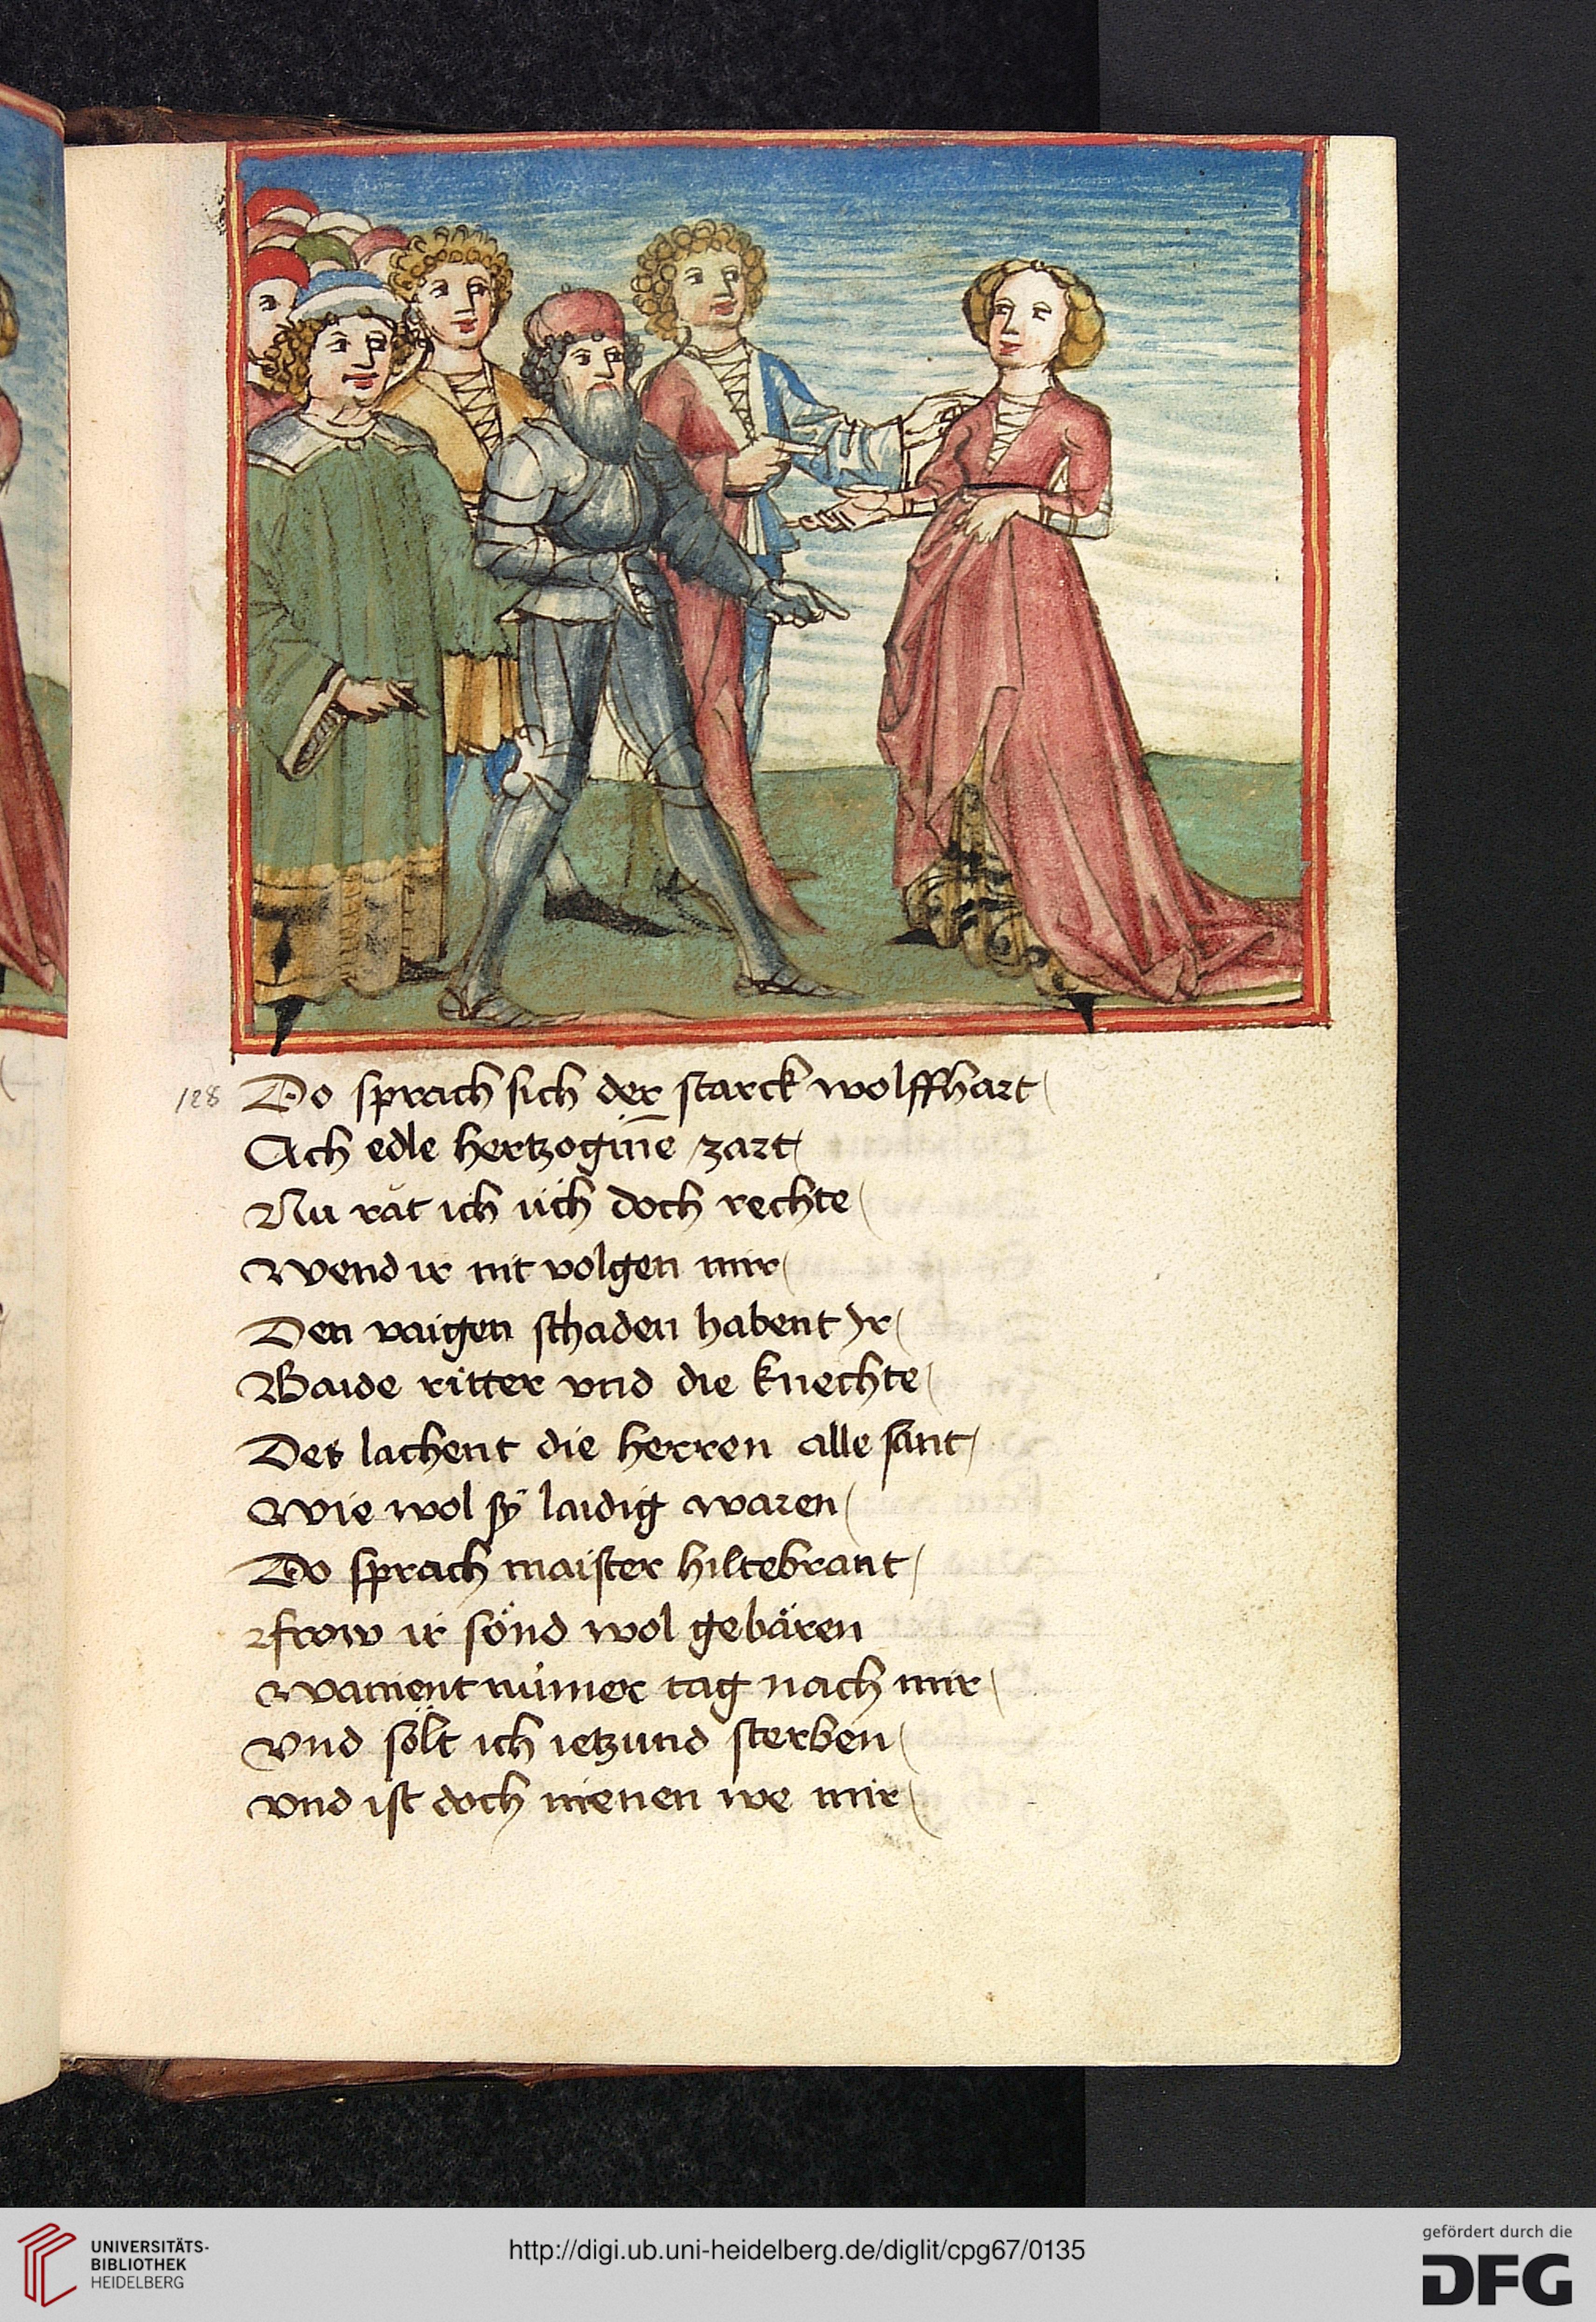 128
Do sprach sich der starck wolffhart
Ach edle hertzogiñe zart
Nu rat ich üch doch rechte
Wend ir nit volgen mir
Den vaigen schaden habent Ir
Baide ritter vnd die knechte
Des lachent die herren alle sant
Wie wol sÿ laidig waren
Do sprach maister hiltebrant
frow ir sönd wol gebären
Wainent nümer tag nach mir
Vnd sölt ich ietzund sterben
Vnd ist doch nienen we mir
UNIVERSITÄTS-
BIBLIOTHEK
HEIDELBERG
http://digi.ub.uni-heidelberg.de/diglit/cpg67/0135
gefördert durch die
DFG